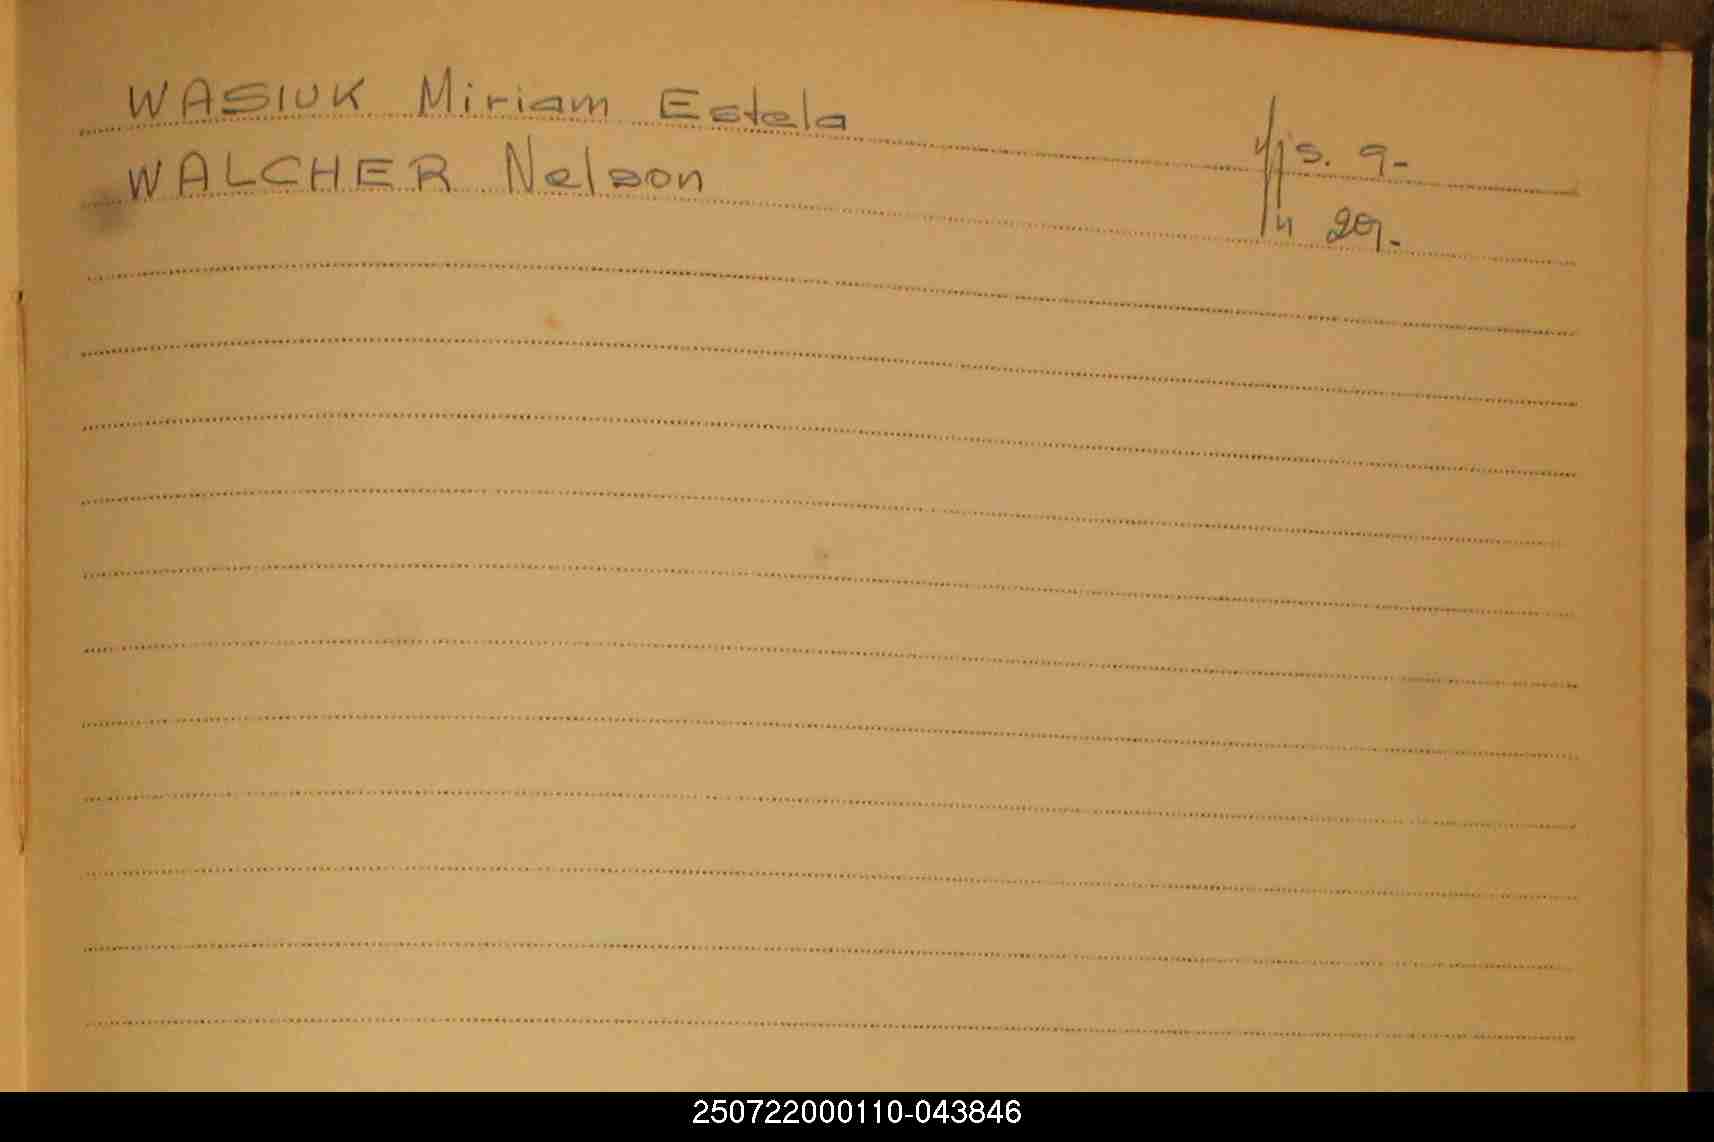 WASIUK Miriam Estela 9-
WALCHER Nelson " 20-
250722000110-043846